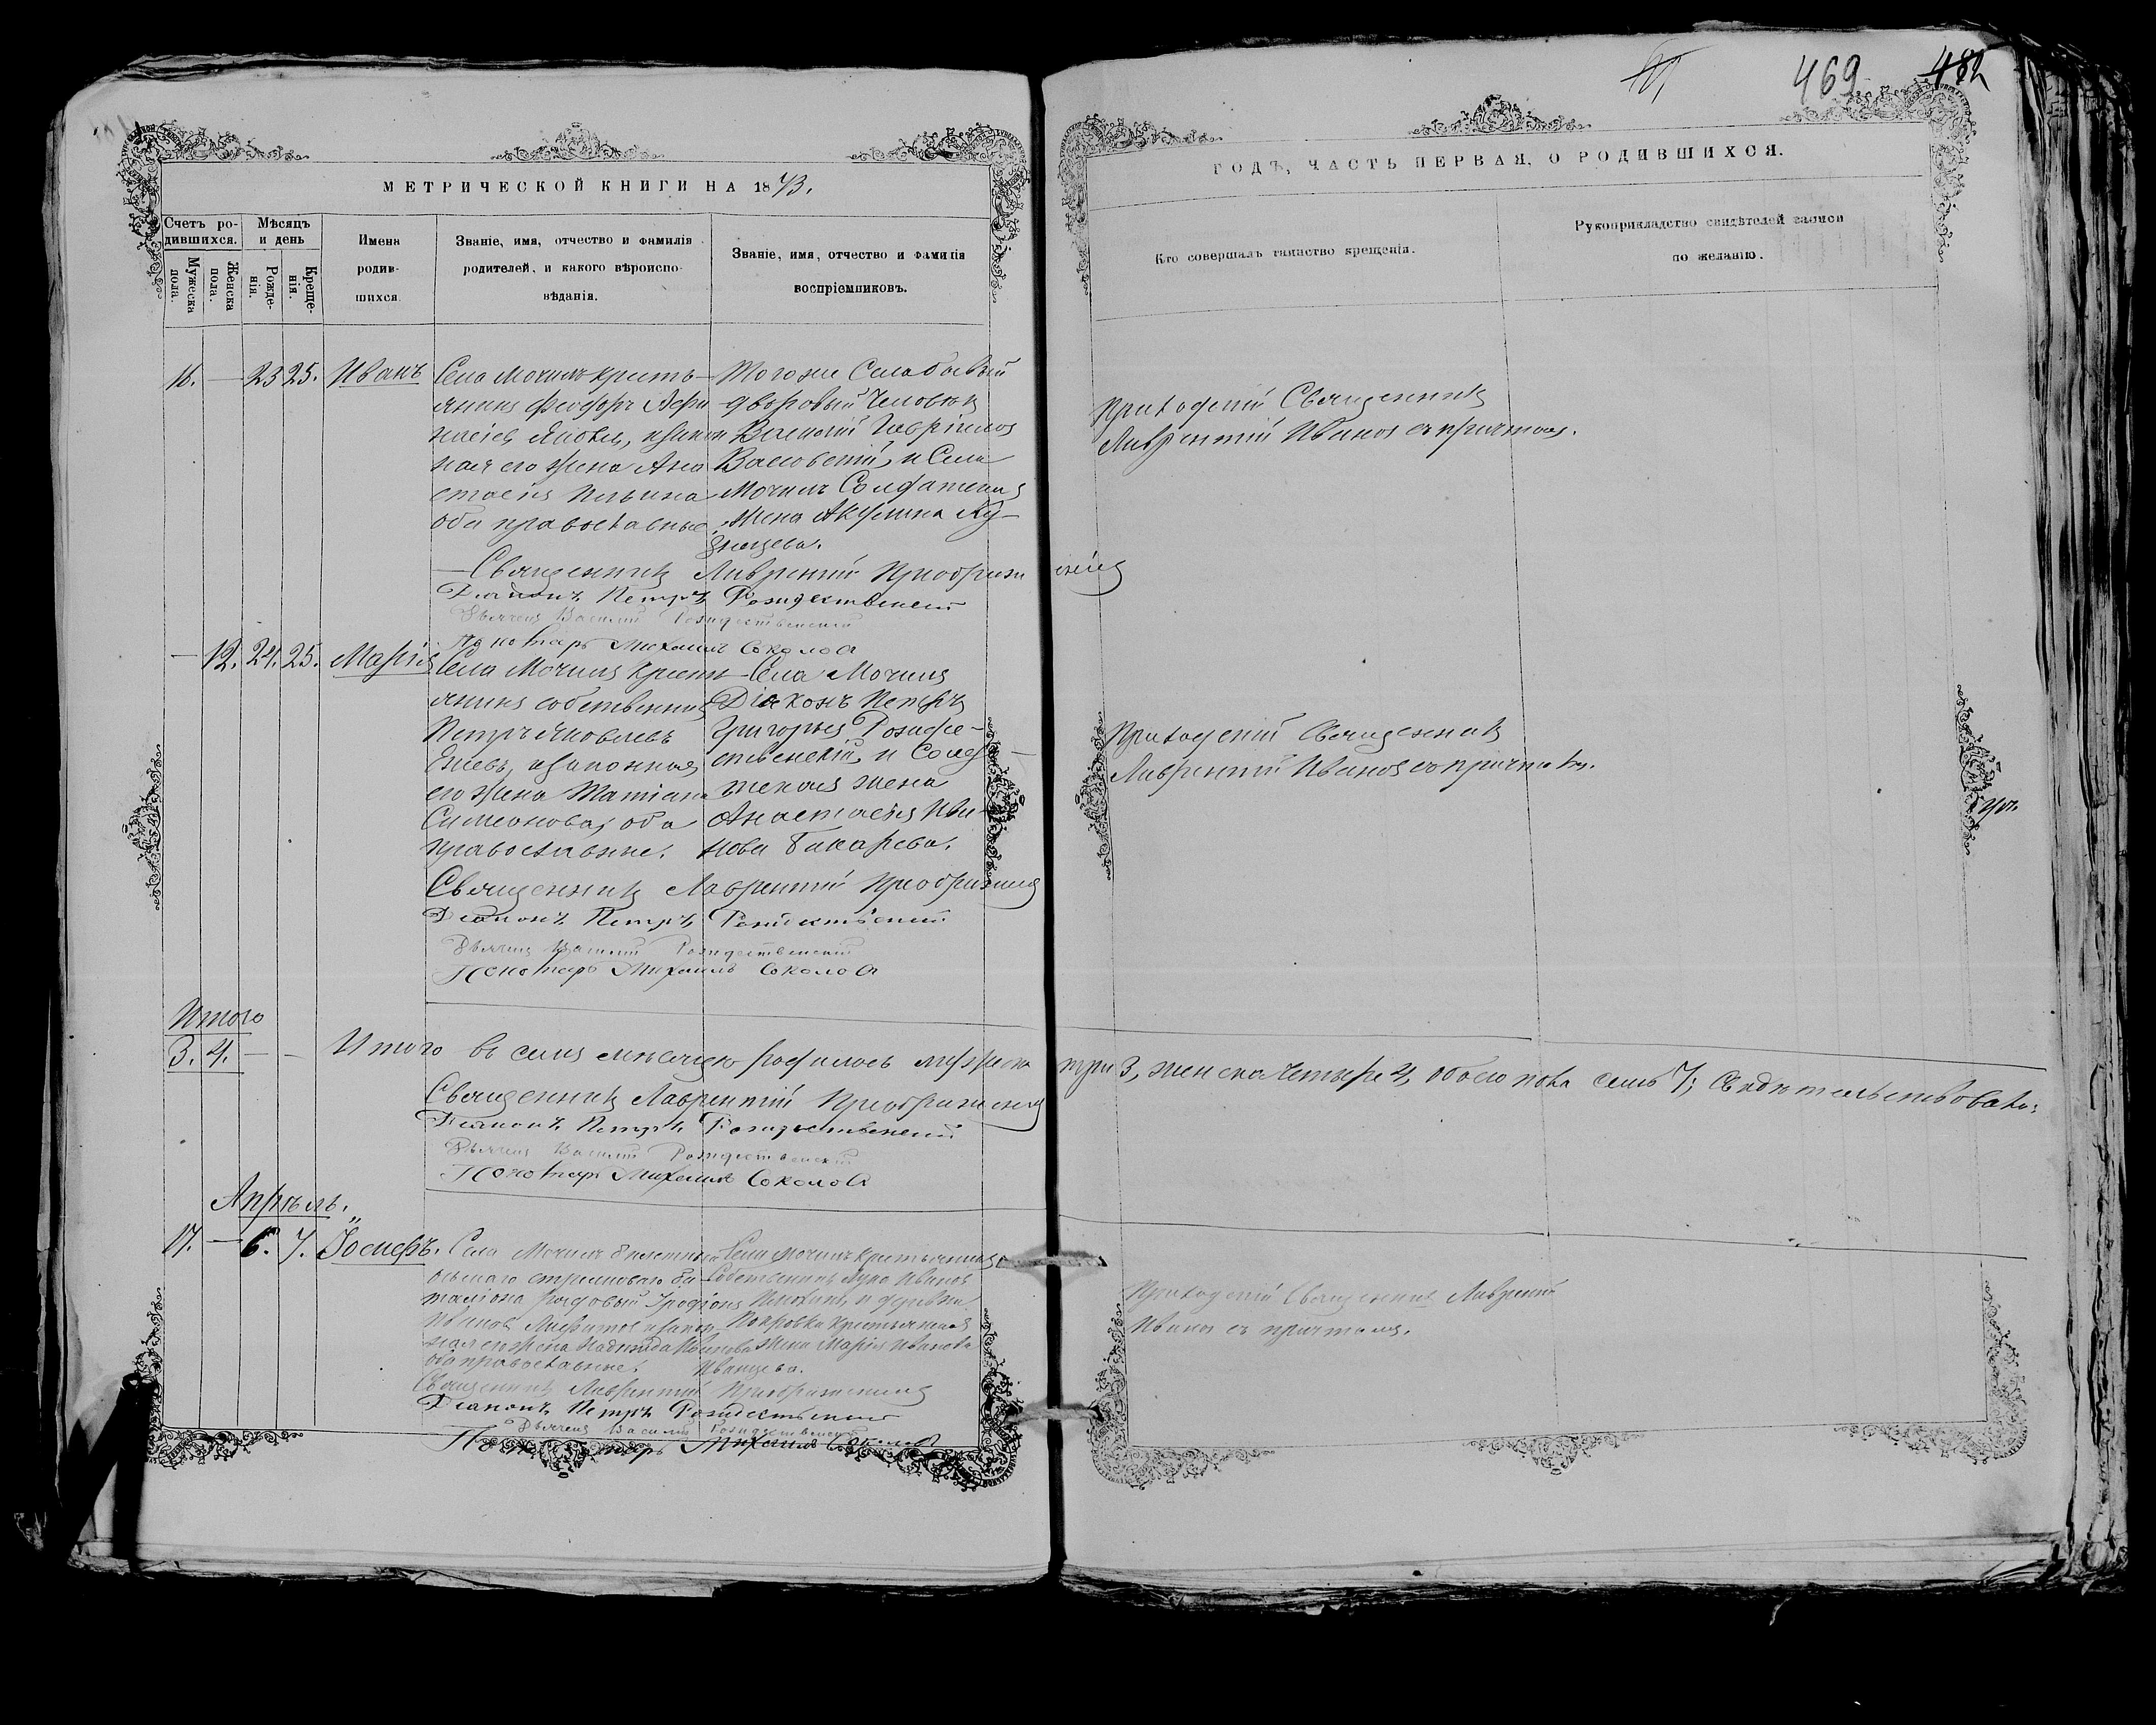 469. 482
МЕТРИЧЕСКОЙ КНИГИ НА 1873.
ГОДЪ, ЧАСТЬ ПЕРВАЯ, О РОДИВШИХСЯ.
Счетъ ро-
дившихся.
Мужеска
пола.
Женска
пола.
Мѣсяцъ
и день
Рожде-
нія.
Креще-
нія.
Имена
родив-
шихся.
Званіе, имя, отчество и фамилія
родителей, и какого вѣроиспо-
вѣданія.
Званіе, имя, отчество и фамилія
воспріемниковъ.
Кто совершалъ таинство крещенія.
Рукоприкладство свидѣтелей записи
по желанію.
16. — 23 25. Иванъ
Села Мочилъ кресть-
янинъ Феодоръ
закон
ная его жена Ана
стасія Ильина
оба православные.
Тогоже Села бывый
дворовый человѣкъ
Василій Гавріиловъ
и Села
Мочилъ Солдатская
жена Акулина Ку-
знецева.
Приходскій Священникъ
Лаврентій Ивановъ съ причтомъ.
Священникъ Лаврентій Преображенскій
Діаконъ Петръ Рождественскій
Дьячекъ Василій Рождественскій
Пономарь Михаилъ Соколовъ
— 12. 24. 25. Марія
Села Мочилъ кресть-
янинъ собственникъ
Петръ Яковлевъ
законная
его жена Татіана
Симеонова, оба
православные.
Села Мочилъ
Діаконъ Петръ
Григорьевъ Рождес-
твенскій, и Солда-
тская жена
Анастасія Ива-
нова Токарева.
Приходскій Священникъ
Лаврентій Ивановъ съ причтомъ.
Священникъ Лаврентій Преображенскій
Діаконъ Петръ Рождественскій
Дьячекъ Василій Рождественскій
Пономарь Михаилъ Соколовъ
Итого
3. 4. — —
Итого въ семъ мѣсяцѣ родилось мужеска три 3, женска четыре 4, обоего пола семь 7; Свидѣтельствовали:
Священникъ Лаврентій Преображенскій
Діаконъ Петръ Рождественскій
Дьячекъ Василій Рождественскій
Пономарь Михаилъ Соколовъ
Апрѣль.
17. — 6. 7. Іосифъ.
Села Мочилъ билетный
стрѣлковаго ба-
таліона рядовый Иродіонъ
Ивановъ закон-
ная его жена Надежда
оба православные.
Села Мочилъ крестьянинъ
Собственникъ Лука Ивановъ
и деревни
Покровки крестьянская
жена Марія Иванова
Иванцева.
Приходскій Священникъ Лаврентій
Ивановъ съ причтомъ.
Священникъ Лаврентій Преображенскій
Діаконъ Петръ Рождественскій
Дьячекъ Василій Рождественскій
Пономарь Михаилъ Соколовъ